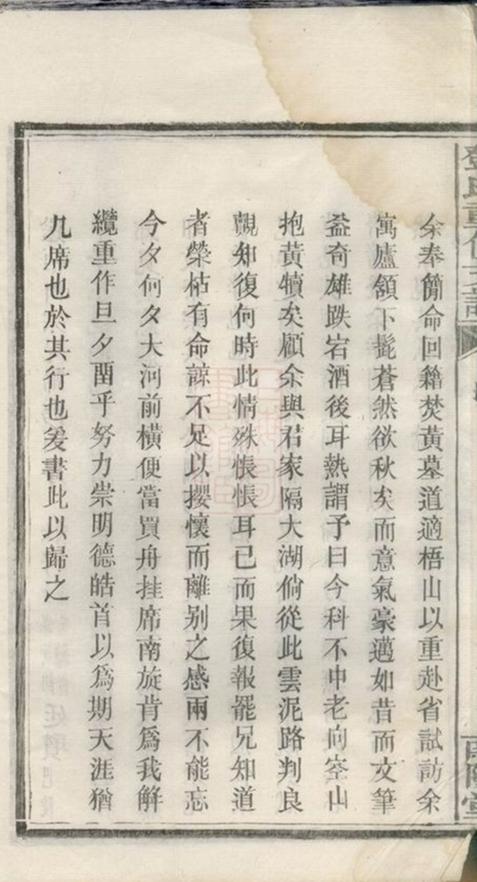 余奉簡命回籍焚黃墓道適梧山以重赴省試訪余
寓廬頷下髭蒼然欲秋矣而意氣豪邁如昔而文筆
益奇雄跌宕酒後耳熱謂予曰今科不中老向空山
抱黃犢矣顧余與君家隔大湖倘從此雲泥路判良
覿知復何時此情殊悵悵耳已而果復報罷兄知道
者榮枯有命諒不足以攖懷而離别之感兩不能忘
今夕何夕大河前橫便當買舟挂席南旋肯爲我解
纜重作旦夕畱乎努力崇明德皓首以爲期天涯猶
几席也於其行也爰書此以歸之